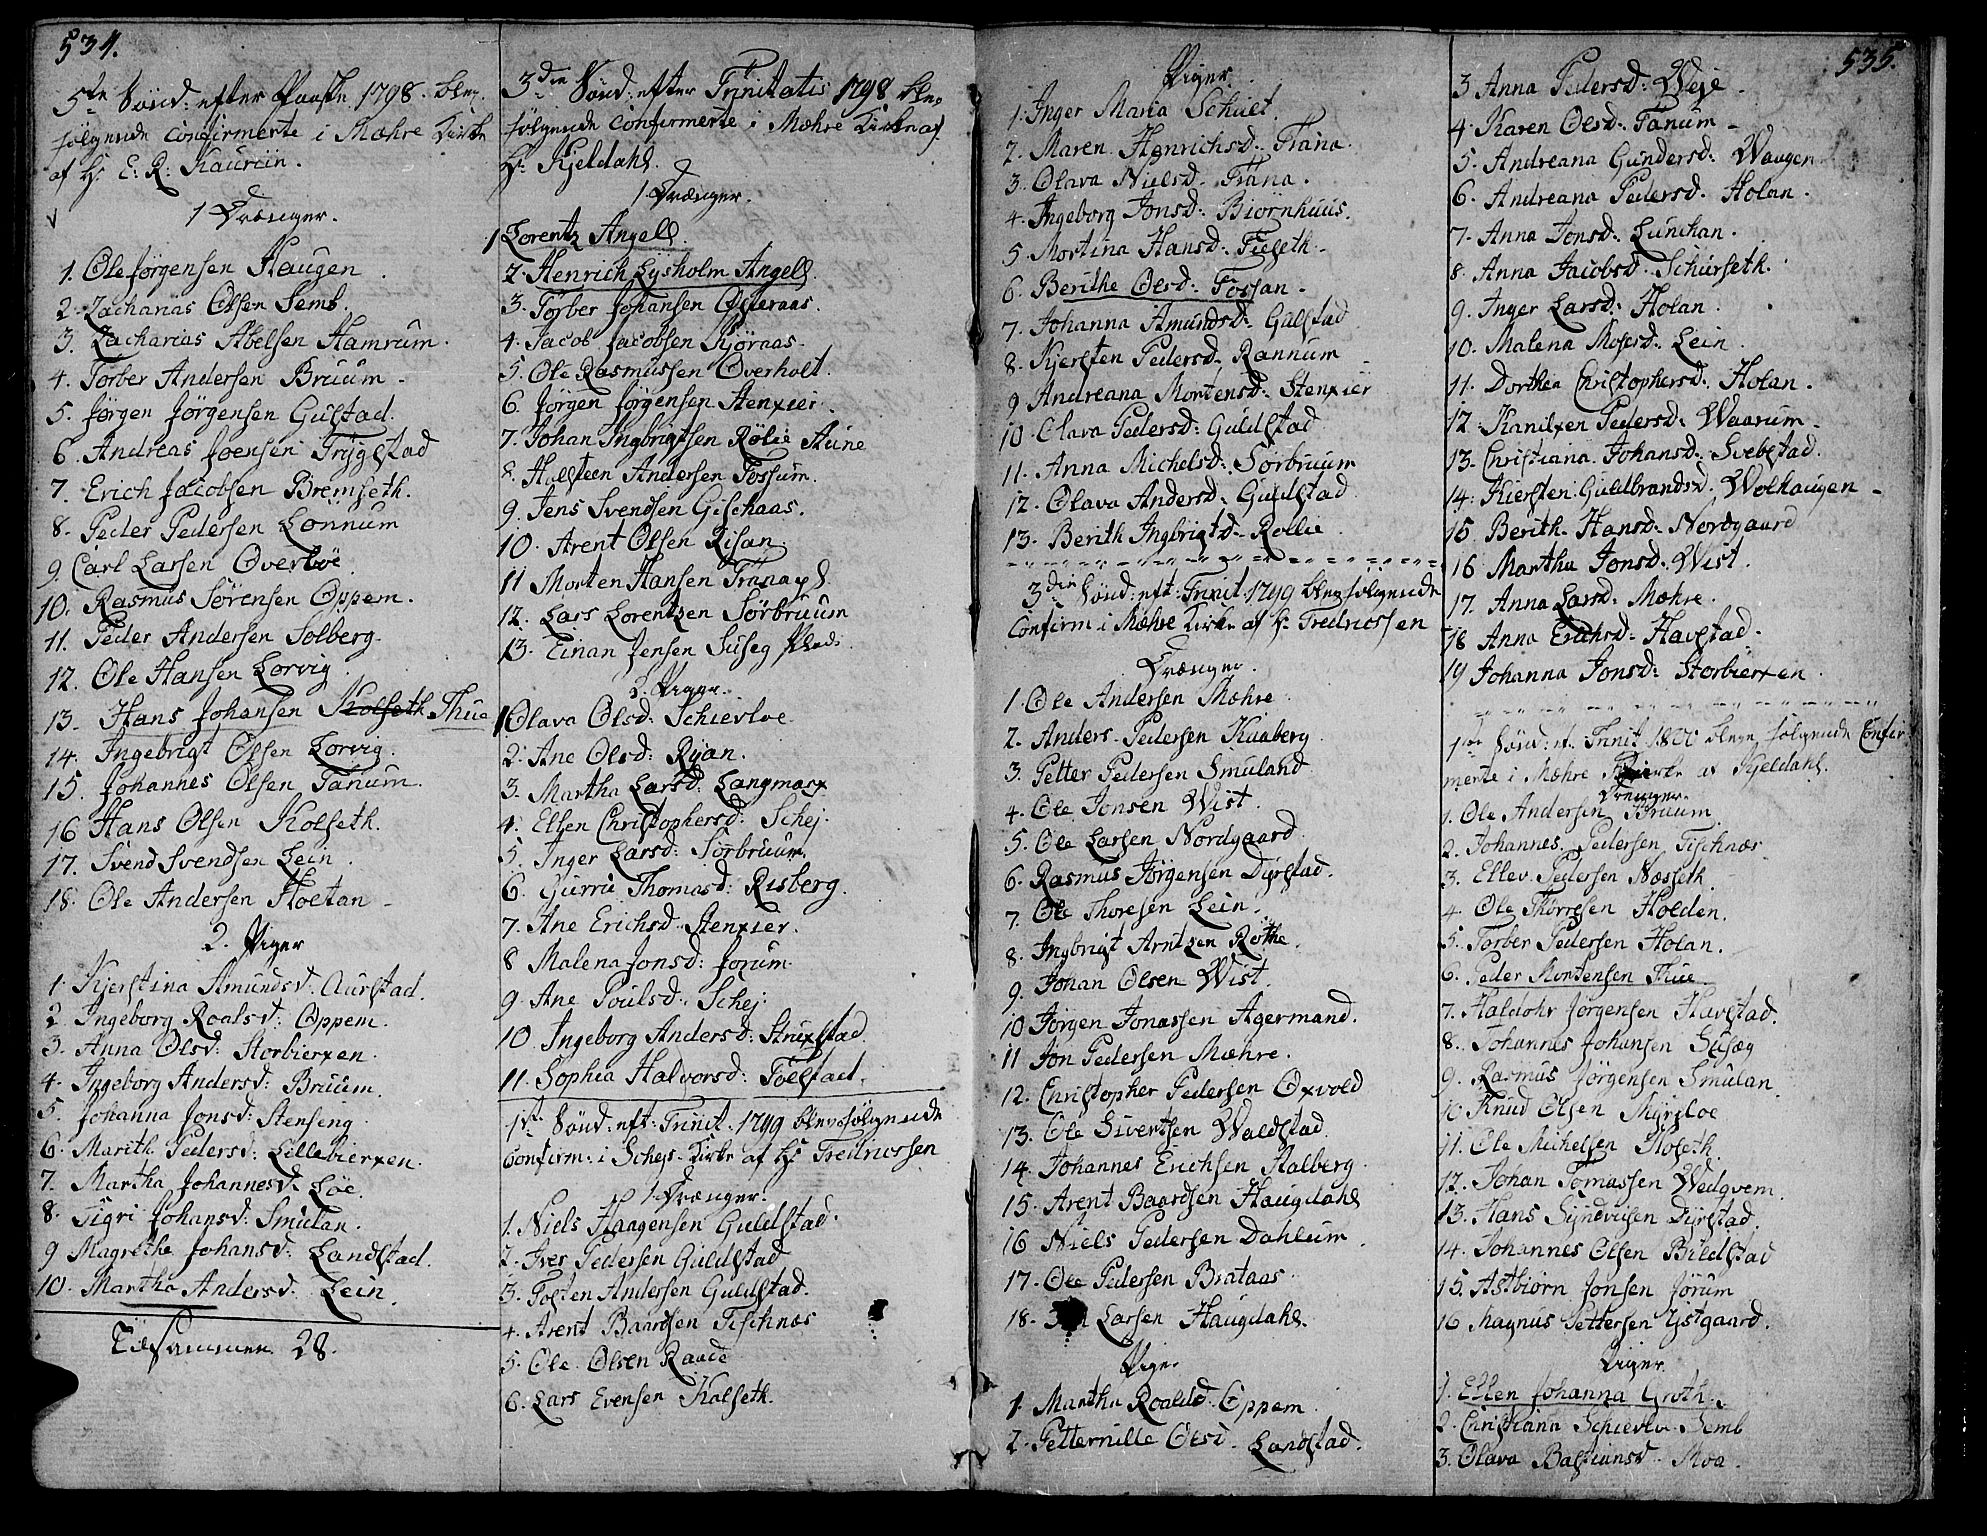 534.
5te Sönd: efter Paaske 1798. blev
følgende confirmerte i Mæhre Kirke
af Hr E: R: Kaurin.
1 Drænger.
1. Ole Jørgensen Haugen
2. Zacharias Olsen Semb.
3. Zacharias Abelsen Hamrum.
4. Torber Andersen Bruum.
5. Jørgen Jørgensen Gulstad.
6. Andreas Joensen Trygstad
7. Erich Jacobsen Bremseth.
8. Peder Pedersen Lønnum
9. Carl Larsen Overløe
10. Rasmus Sörensen Oppem.
11. Peder Andersen Solberg.
12. Ole Hansen Lorvig
13. Hans Johansen Kolseth Thue
14. Ingebrigt Olsen Lorvig.
15. Johannes Olsen Tanum.
16 Hans Olsen Kolseth.
17. Svend Svendsen Lein.
18. Ole Andersen Hoetan
2. Piger
1. Kjerstina Amundsd: Aurstad.
2 Ingeborg Roalsd: Oppem.
3. Anna Olsd: Storbierken.
4. Ingeborg Andersd: Bruum.
5. Johanna Jonsd: Stenseng
6. Marith Pedersd: Lillebierken.
7. Martha Johannesd. Løe.
8. Sigri Johansd: Smulan.
9 Magrethe Johansd: Landstad.
10. Martha Andersd: Lein.
Tilsammen 28.
3die Sönd: efter Trinitatis 1798 blev
følgende confirmerte i Mæhre Kirke af
Hr Kjeldahl.
1 Drænger.
1 Lorentz Angell.
2 Henrich Lysholm Angell.
3. Torber Johansen Osteraas.
4. Jacob Jacobsen Kjöraas.
5. Ole Rasmussen Overholt.
6. Jörgen Jörgensen Stenkier.
7. Johan Ingbrigtsen Rölie Aune
8. Halsteen Andersen Fossum.
9. Jens Svendsen Gilshaas.
10. Arent Olsen Risan.
11 Morten Hansen Tranaas.
12. Lars Lorentzen Sörbruum
13. Einan Jensen Suseg
2. Piger.
1 Olava Olsd: Schievloe
2. Ane Olsd: Ryan.
3. Martha Larsd: Langmark
4. Ellen Christophersd: Schej.
5. Inger Larsd: Sörbruum.
6. Gurru Thomasd: Risberg.
7. Ane Erichsd: Stenkier.
8 Malena Jonsd: Jorum.
9. Ane Poulsd: Schej.
10. Ingeborg Andersd: Strukstad.
11. Sophia Halvorsd: Foelstad.
1ste Sönd: eft: Trinit. 1799 blev følgende
Confirm: i Schejs Kirke af Hr Fredricssen
1 Drænger.
1. Niels Haagensen Guldstad.
2. Iver Pedersen Guldstad
3. Tosten Andersen Guldstad.
4. Arent Baardsen Fischnæs
5. Ole Olsen Raade
6. Lars Evensen Kalseth.
535.
Piger
1. Inger Maria Schult.
2. Maren Henrichsd: Trana.
3. Olava Nielsd. Trana.
4. Ingeborg Jonsd: Biörnhuus.
5. Mortina Hansd: Fieseth.
6. Berithe Olsd: Fossan.
7. Johanna Amundsd: Gulstad
8. Kjersten Pedersd. Rannum
9 Andreana Mortensd: Stenkier
10. Olava Pedersd: Guldstad
11. Anna Michelsd: Sörbruum
12. Olava Andersd: Guldstad
13. Berith Ingbrigtd. Rollie
3die Sönd: eft: Trinit. 1799 blev følgende
Confirm i Mæhre Kirke af Hr Fredricssen
Drænger.
1. Ole Andersen Mæhre
2. Anders Pedersen Kaaberg
3. Petter Pedersen Smuland
4. Ole Jonsen Wist.
5. Ole Larsen Nordgaard
6. Rasmus Jörgensen Dyrstad.
7. Ole Thoresen Lein.
8. Ingbrigt Arntzen Rothe.
9. Johan Olsen Wist.
10 Jörgen Jonassen Agermand.
11 Jon Pedersen Mæhre.
12. Christopher Pedersen Oxvold
13. Ole Sivertsen Waldstad
14. Johannes Erichsen Aalberg.
15. Arent Baardsen Haugdahl
16 Niels Pedersen Dahlum.
17. Ole Pedersen Brataas.
18. Larsen Haugdahl.
Piger
1. Martha Roaldsd. Oppem.
2. Petternille Olsd. Landstad.
3 Anna Pedersd: Weje
4. Karen Olsd: Tanum
5. Andreana Gundersd: Waagen
6. Andreana Pedersd: Holan.
7. Anna Jonsd: Lunchan.
8. Anna Jacobsd. Schürseth.
9. Inger Larsd: Holan.
10. Malena Mosesd: Lein.
11. Dorthea Christophersd: Holan.
12. Kanilken Pedersd: Waarum.
13. Christiana Johansd: Svebstad.
14. Kiersten Guldbrandsd. Wolhaugen
15 Berith. Hansd: Nordgaard
16 Martha Jonsd: Wist.
17. Anna Larsd: Mæhre.
18 Anna Erichsd: Havstad.
19 Johanna Jonsd: Storbierken.
1ste Sönd: ef. Trinit 1800 bleve følgende Confir
merte i Mæhre Kierke af Kjeldahl.
Drænger.
1. Ole Andersen Bruum.
2. Johannes Pedersen Fischnæs
3. Ellev Pedersen Næsseth
4. Ole Thörresen Holden.
5. Torber Pedersen Holan.
6. Peder Mortensen Thue
7. Haldohr Jörgensen Havstad.
8. Johannes Johansen Susæg
9. Rasmus Jörgensen Smulan
10 Knud Olsen Myrsloe
11. Ole Michelsen Moseth.
12. Johan Tomassen Wedgvem.
13. Hans Syndvisen Dyrstad.
14. Johannes Olsen Buldstad
15. Astbiörn Jonsen Jörum
16 Magnus Pettersen Ystgaard.
Piger
1. Ellen Johanna Groth.
2. Christiana Schievlo Semb
3. Olava Bastiansd. Moa.